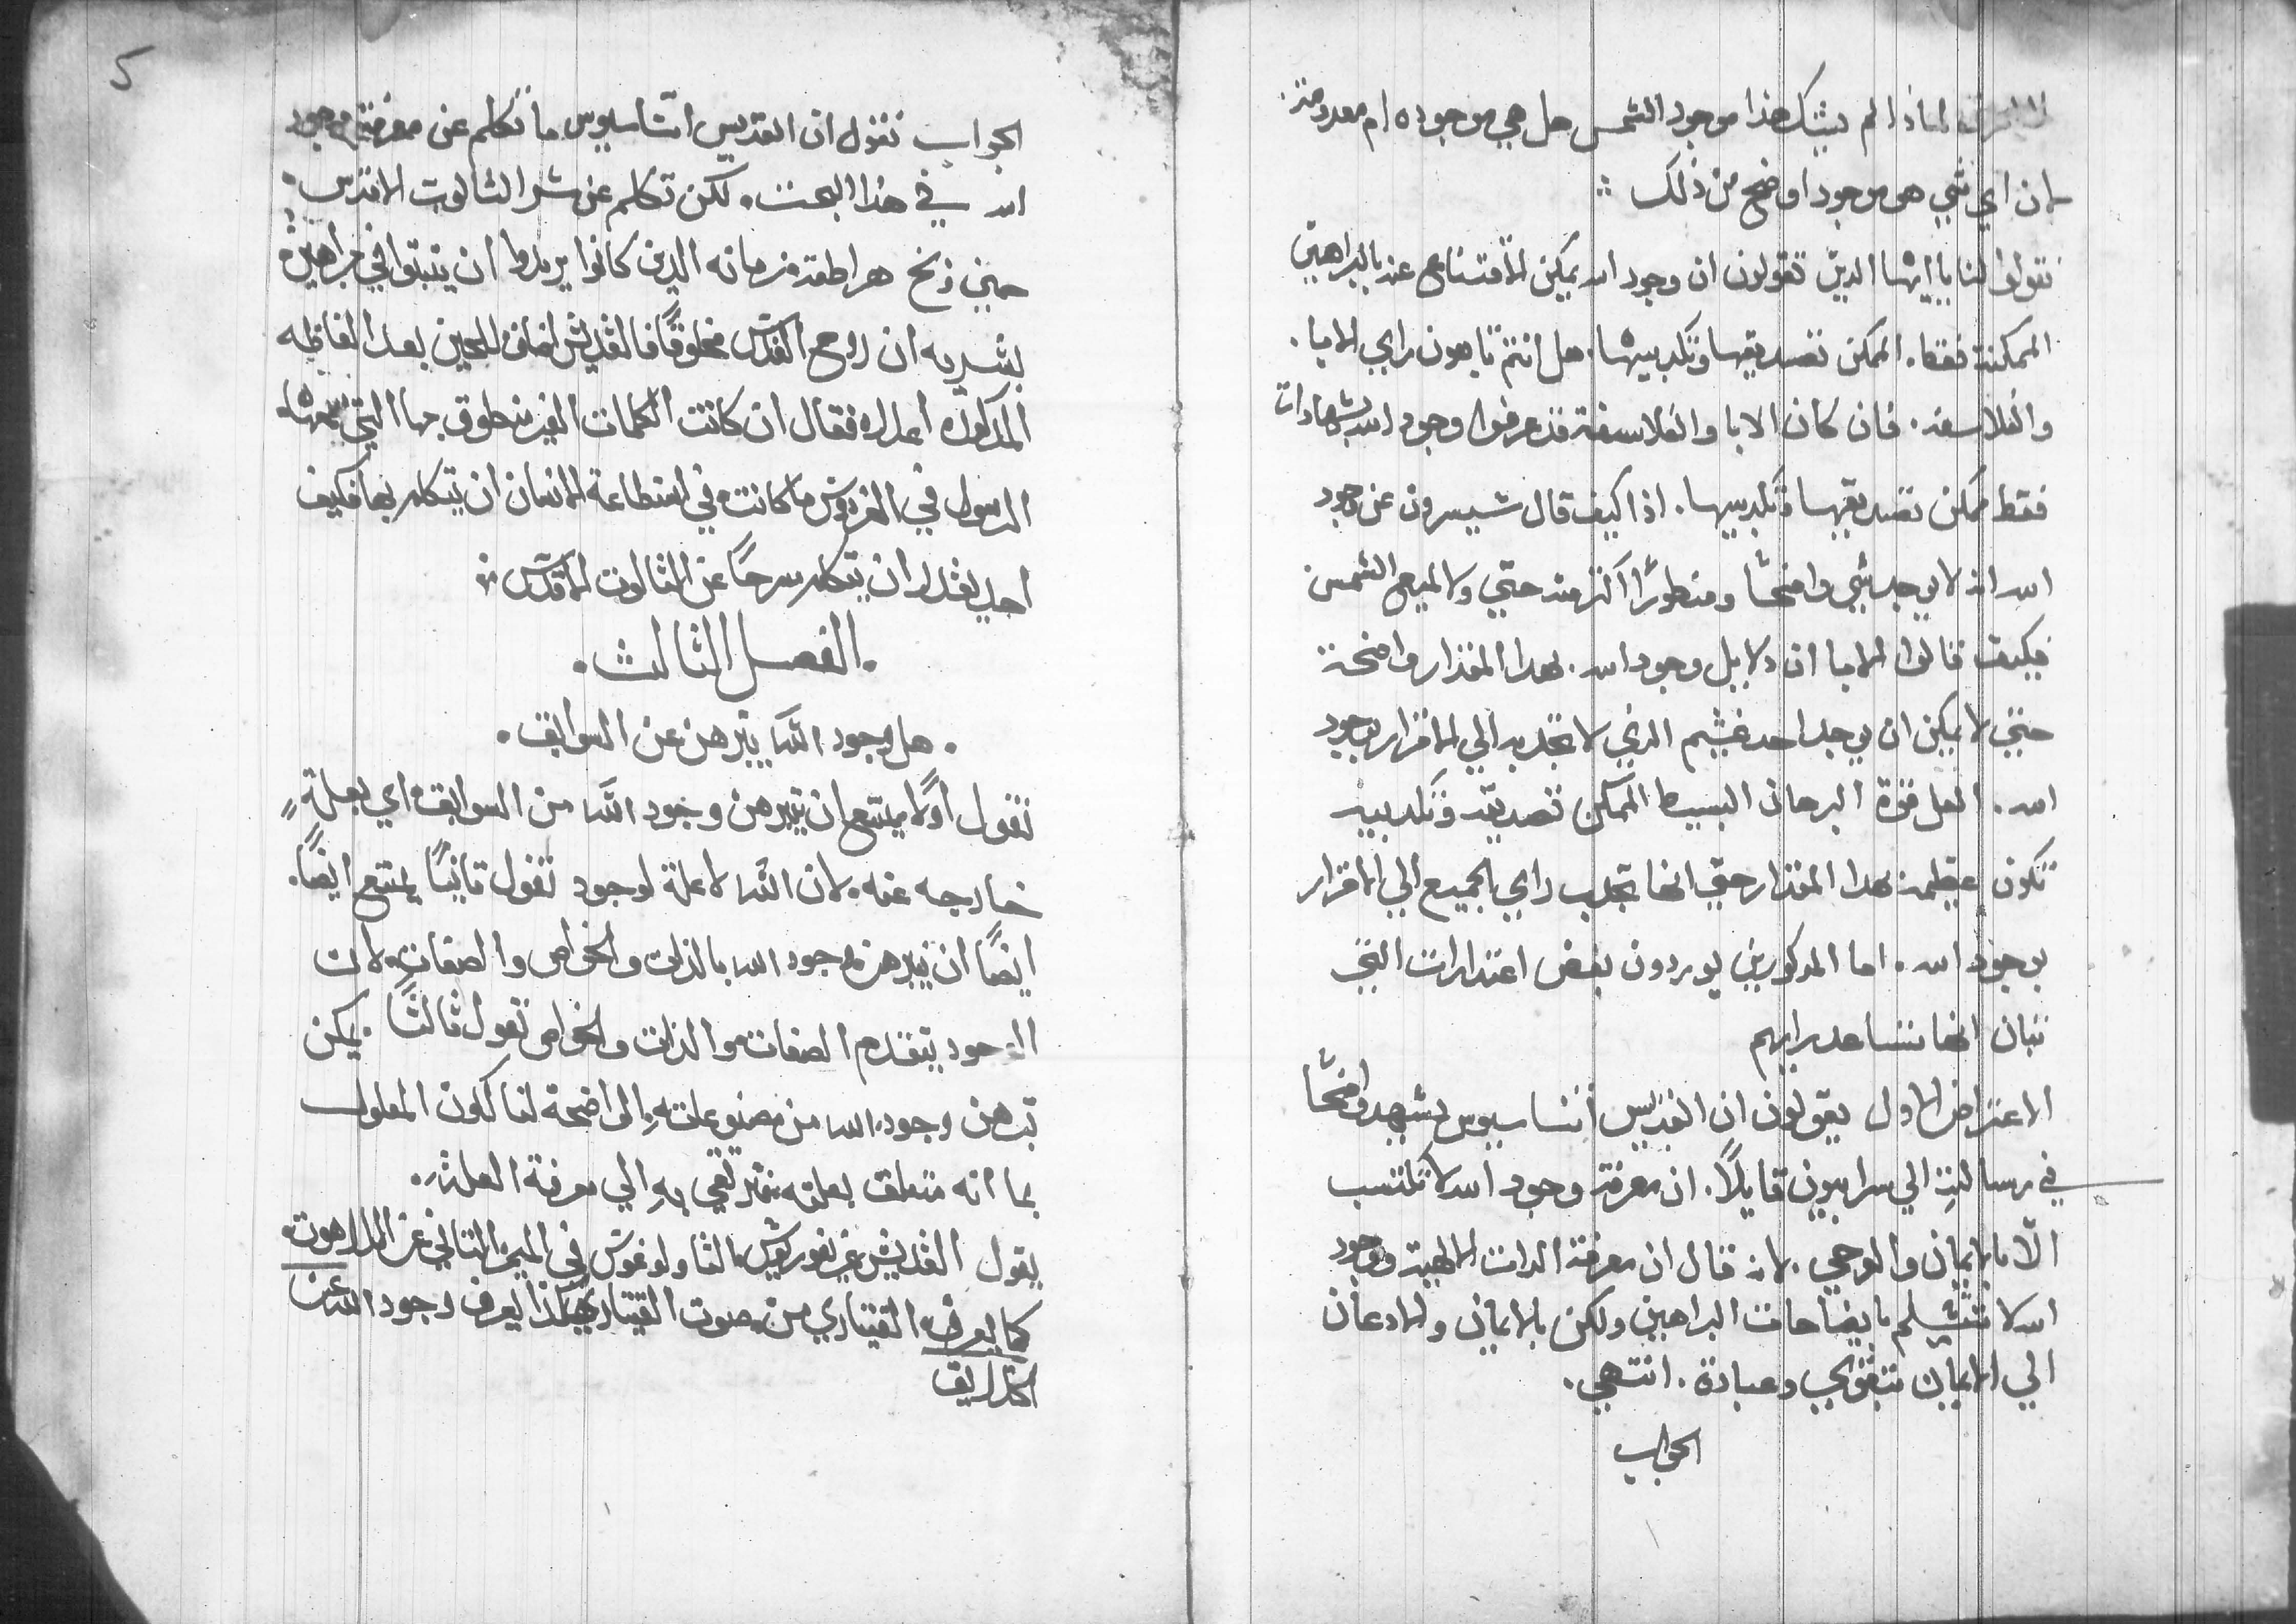 لماذا لم يشك هذا موجود الشمس هل هي موجوده ام معدومة.
لان اي شي هو موجود اوضح من ذلك ؞
تقولوا لنا يا ايها الدين تقولون ان وجود الله يمكن الاقتناع عنه بالبراهين
الممكنة فقط. الممكن تصديقها وتكديبها. هل انتم تابعون راي الابا.
والفلاسفه. فان كان الابا والفلاسفة قد عرفوا وجود الله بشهادات
فقط ممكن تصديقها وتكديبها. اذا كيف قال شيسرون عن وجود
الله انه لا يوجد شي واضحًا ومنظورًا اكثر منه حتي ولا لميع الشمس
فكيف قالوا الابا ان دلايل وجود الله. بهدا المقدار واضحة
حتي لا يمكن ان يوجد احد غشيم الذي لا تجذبه الي الاقرار بوجود
الله. العل قوة البرهان البسيط الممكن تصديقه وتكديبه
تكون عظيمة بهدا المقدار حتي انها تجدب راي الجميع الي الاقرار
بوجود الله. اما المدكورين يوردون بعض اعتدارات التي
تبان انها تساعد رايهم
الاعتراض الاول يقولون ان القديس اتناسيوس يشهد واضحًا
في رسالته الي سرابيون قايلاً. ان معرفة وجود الله لا تكتسب
الّا بالايمان والوحي. لانه قال ان معرفة الدات الالهية ووجود
الله لا تتسلم بايضاحات البراهين ولكن بالايمان والادعان
الي الايمان بتقوي وعبادة. انتهي.
الجواب
5
الجواب نقول ان القديس اتناسيوس ما تكلم عن معرفة وجود
الله في هذا البحث. لكن تكلم عن سر الثالوت الاقدس.
حيني وبخ هراطقة زمانه الدين كانوا يريدوا ان يتبتوا في براهين
بشريه ان روح القدس مخلوقًا فالقديس اضاف للحين بعد الفاظه
المدكوره اعلاه فقال ان كانت الكلمات الغير منطوق بها التي سمعها
الرسول في الفردوس ما كانت في استطاعة الانسان ان يتكلم بها فكيف
احد يقدر ان يتكلم سرحًا عن الثالوت الاقدس ؞
. الفصل الثالث .
. هل وجود الله يتبرهن عن السوابق .
نقول اولًا يمتنع ان يتبرهن وجود الله من السوابق اي بعلةٍ
خارجه عنه. لان الله لا علة لوجوده نقول تانيًا يمتنع ايضًا.
ايضًا ان يتبرهن وجود الله بالذات والخواص والصفات. لان
الوجود يتقدم الصفات والذات والخواص نقول ثالثًا. يمكن
تبرهن وجود الله من مصنوعاته الواضحة لنا لكون المعلول
بما انه متعلق بعلته فنرتقي به الي معرفة العلة.
يقول القديس غريغوريوس الثاولوغوس في الميمر التاني عن اللاهوت
كما يعرف القيتاري من صوت القيتار هكذا يعرف وجود الله عن
الخلايق